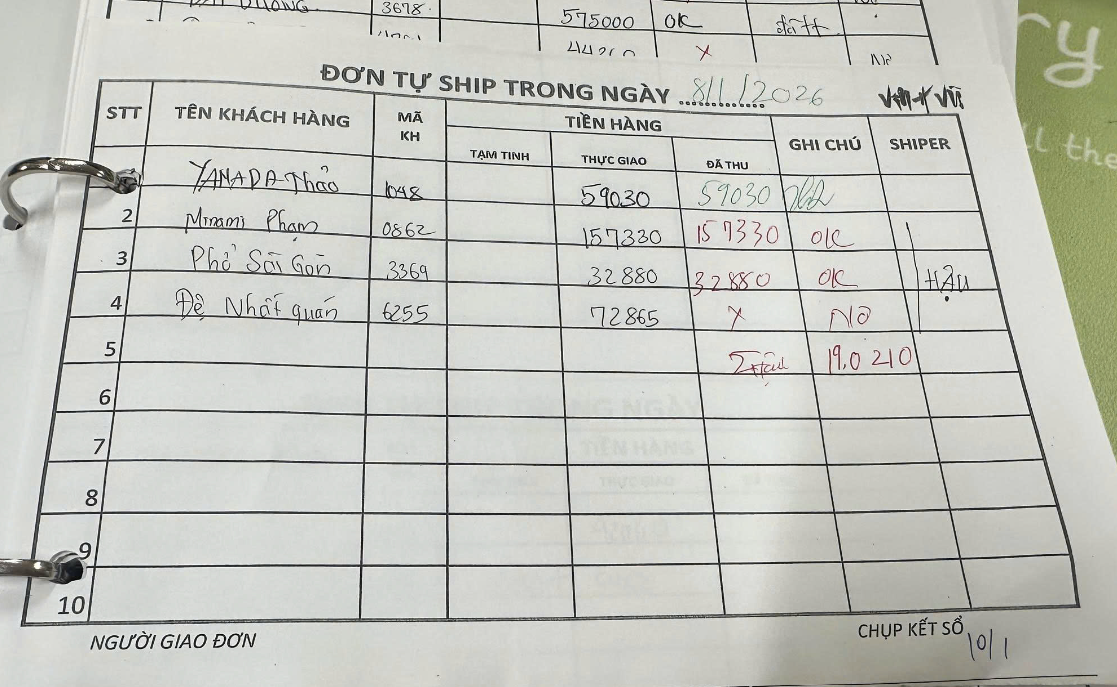 3678
575000 OK
X
ĐƠN TỰ SHIP TRONG NGÀY 8/1/2026
STT TÊN KHÁCH HÀNG MÃ KH TIỀN HÀNG GHI CHÚ SHIPER
TẠM TINH THỰC GIAO ĐÃ THU
YAMADA-Thảo 1048 59030 59030
2 Minami Phạm 0862 157330 157330 OK
3 Phở Sài Gòn 3369 32880 32880 OK HẬU
4 Đệ Nhất quán 6255 72865 X Nợ
5 19.0 210
6
7
8
9
10
NGƯỜI GIAO ĐƠN CHỤP KẾT SỔ 10/1